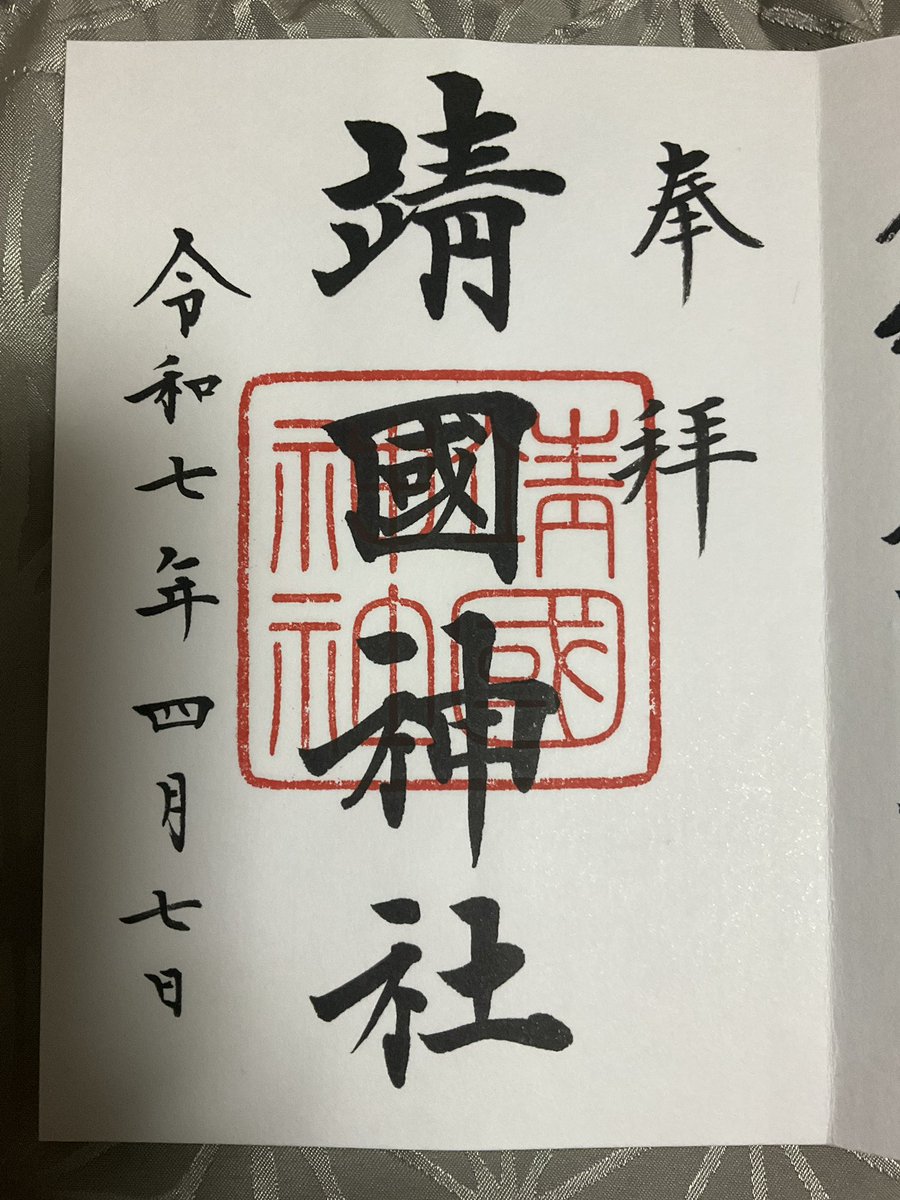 奉拝
靖國神社
靖國神社
令和七年四月七日